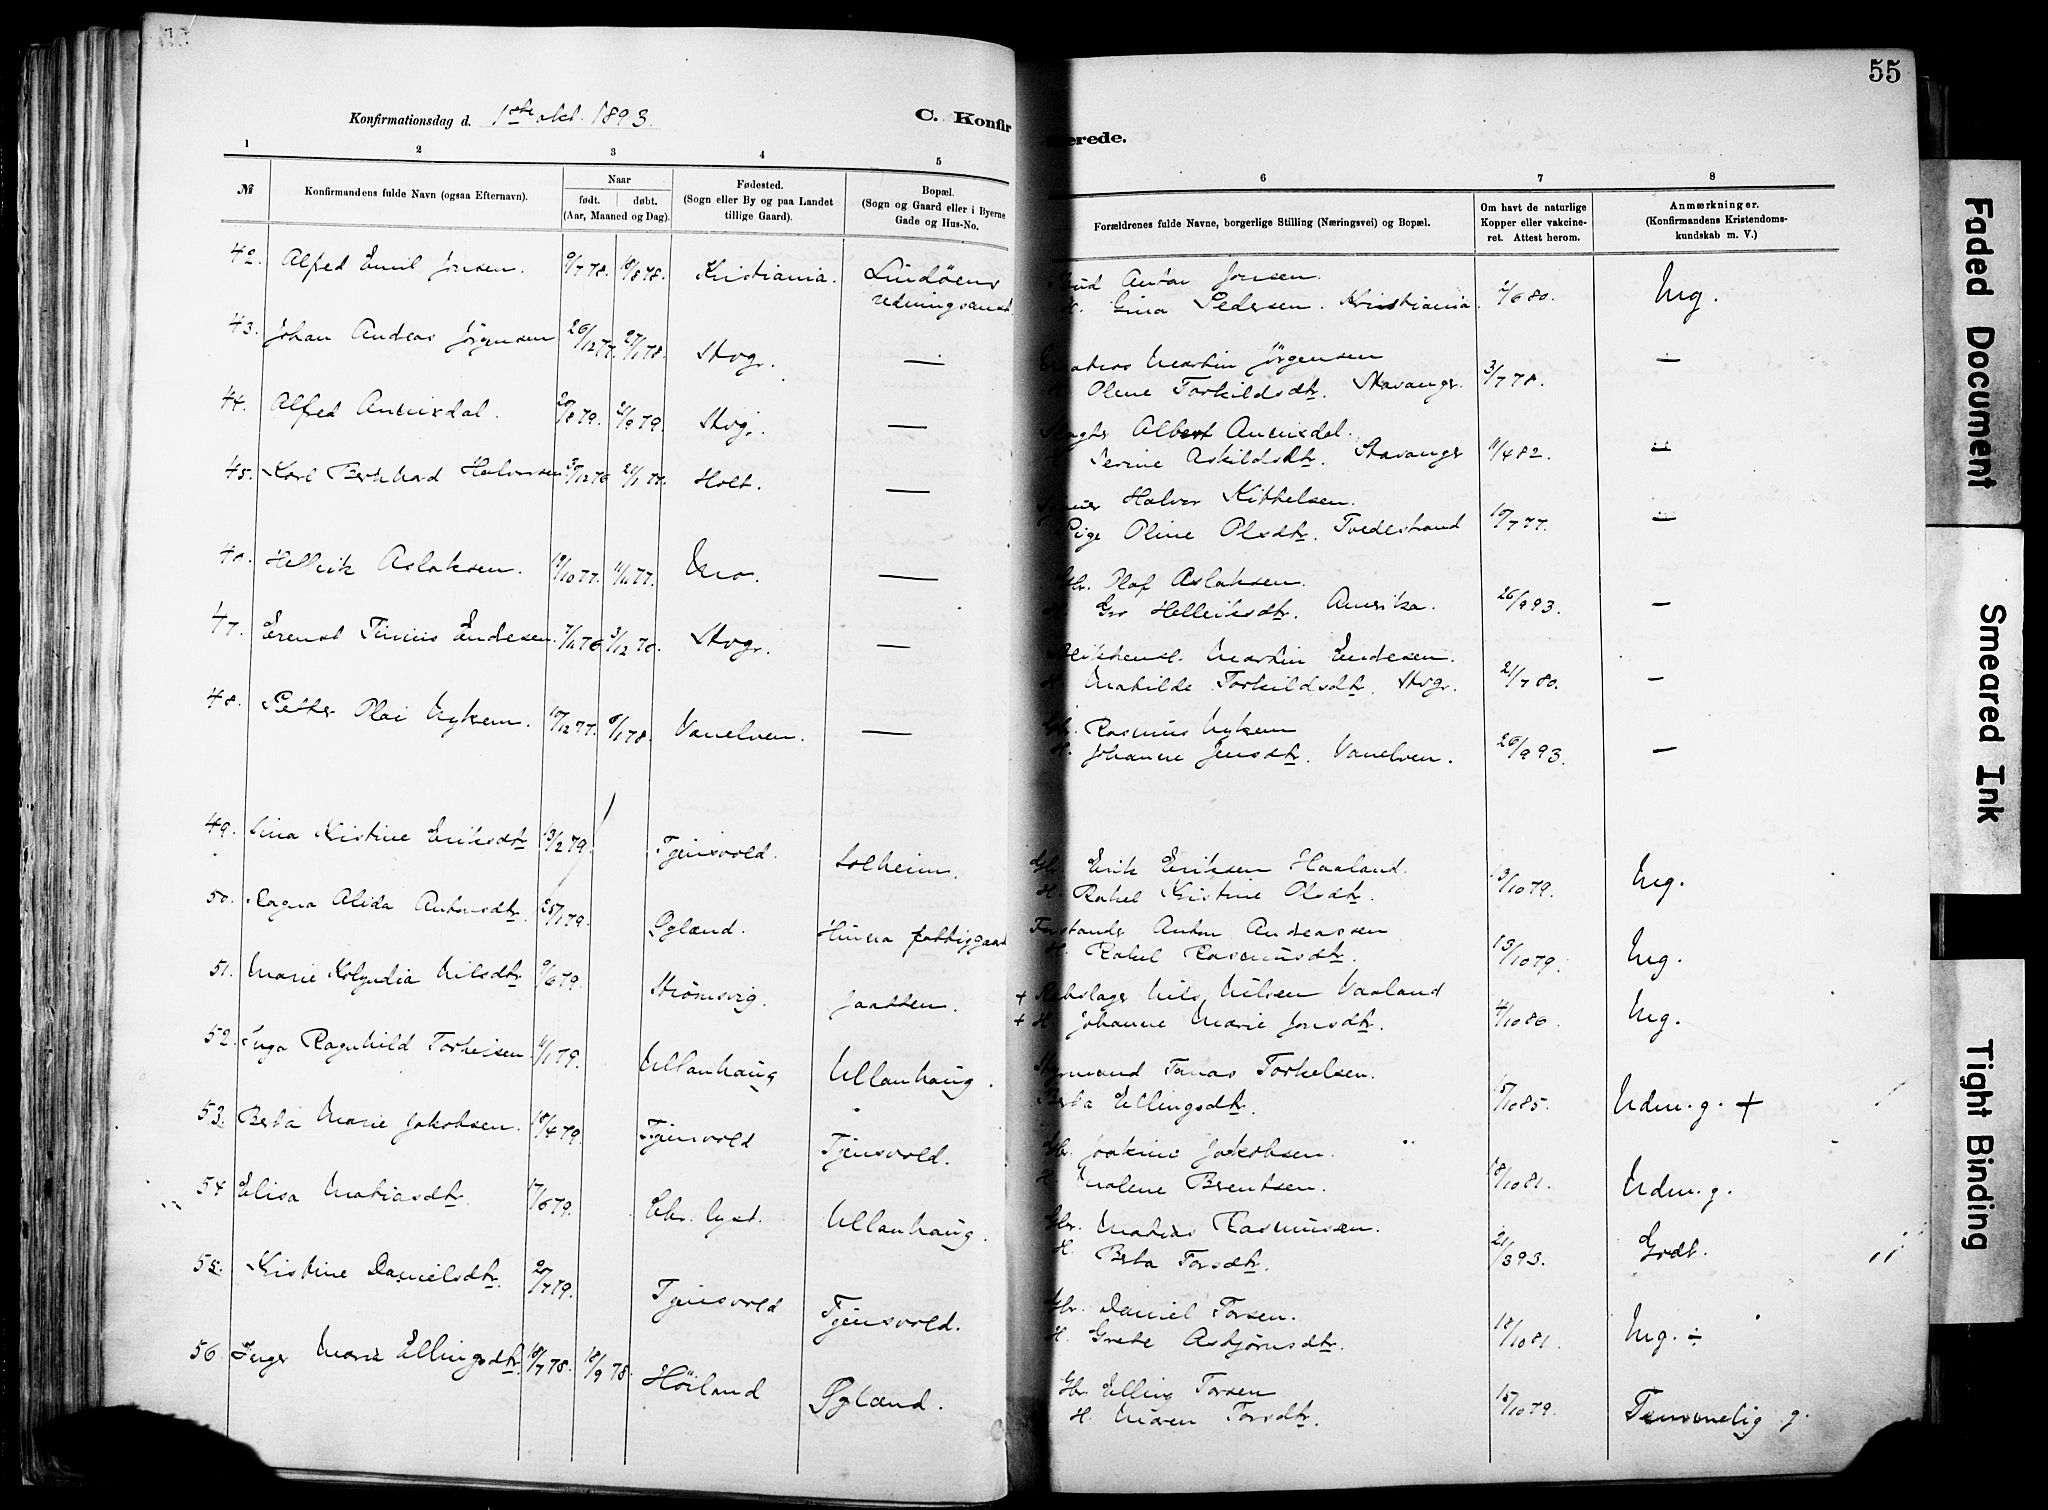 55
Konfirmationsdag d. 1ste okt. 1893.
C. Konfir
merede.
1 2 3 4 5 6 7 8
№
Konfirmandens fulde Navn (ogsaa Efternavn).
Naar
født. døbt.
(Aar, Maaned og Dag).
Fødested.
(Sogn eller By og paa Landet
tillige Gaard).
Bopæl.
(Sogn og Gaard eller i Byerne
Gade og Hus-No.
Forældrenes fulde Navne, borgerlige Stilling (Næringsvei) og Bopæl.
Om havt de naturlige
Kopper eller vakcine-
ret. Attest herom.
Anmærkninger.
(Konfirmandens Kristendoms-
kundskab m. V.)
42. Alfred Emil Jonsen. 9/7 78. Kristiania. Lindøens
redningsanst.
Anton Jonsen.
H. Gina Pedersen. Kristiania. 2/6 80. Mg.
43. Johan Andreas Jørgensen 26/12 77. 27/1 78. Stvgr. —
Martin Jørgensen
Olene Torkildsdtr. Stavanger. 3/7 78. —
44. Alfred 20/8 79. 21/9 79. Stvgr. —
Albert
Serine Askildsdtr. Stavanger 11/4 82. —
45. Karl Bernhard Halvorsen Holt. —
Halvor Kittelsen.
Pige Oline Olsdtr. Tvedestrand 10/7 77. —
46. Hellik Aslaksen. 19/10 77. 11/11 77. Mo. —
Gbr. Olaf Aslaksen.
H. Gro Helleiksdtr. Amerika. 26/9 93. —
47. Erenst Tinius Endesen. 7/11 76 3/12 76. Stvgr. —
Blikkensl. Martin Endesen.
H. Matilde Torkildsdtr. Stvgr. 21/7 80. —
48. Petter Olai Myklem. 10/12 77. 6/1 78. Vanelven. —
Gbr. Rasmus Myklem
H. Johanne Jensdtr. Vanelven. 26/9 93. —
49. Sina Kristine Eriksdtr 13/2 79. Tjensvold. Solheim.
Gbr. Erik Eriksen Haaland.
H. Rakel Kristine Olsdtr. 13/10 79. Mg.
50. Ragna Alida Antonsdtr. 25/1 79. Øgland. Hinna fattiggaard
Forstander Anton Andreassen
H. Rakel Rasmusdtr. 13/10 79. Mg.
51. Marie Nilsdtr 9/6 79. Strömsvig. Jaatten.
+ Rebslager Nils Nilsen Vaaland
+ H. Johanne Marie Jonsdtr. 4/10 80. Mg.
52. Inga Ragnhild Torkelsen 11/1 79. Ullanhaug Ullanhaug.
Styrmand Tonas Torkelsen.
Berta Ellingsdtr. 15/10 85. Udm. g. +
53. Berta Marie Jakobsen. 18/4 79. Tjensvold Tjensvold.
Gbr. Joakim Jakobsen.
H. Malene Berntsen. 18/10 81. Udm. g.
54 Elisa Matiasdtr. 17/6 79. Chr. lyst. Ullanhaug.
Gbr. Matias Rasmussen.
H. Berta Torsdtr. 21/3 93. Godt.
55. Kristine Danielsdtr. 20/7 79. Tjensvold Tjensvold.
Gbr. Daniel Torsen.
H. Grete Asbjørnsdtr. 18/10 81. Mg. ÷
56. Inger Marie Ellingsdtr 18/7 78. 18/9 78. Höiland Øgland.
Gbr. Elling Torsen
H. Maren Torsdtr. 15/10 79. Temmelig g.
Faded Document
Smeared Ink
Tight Binding